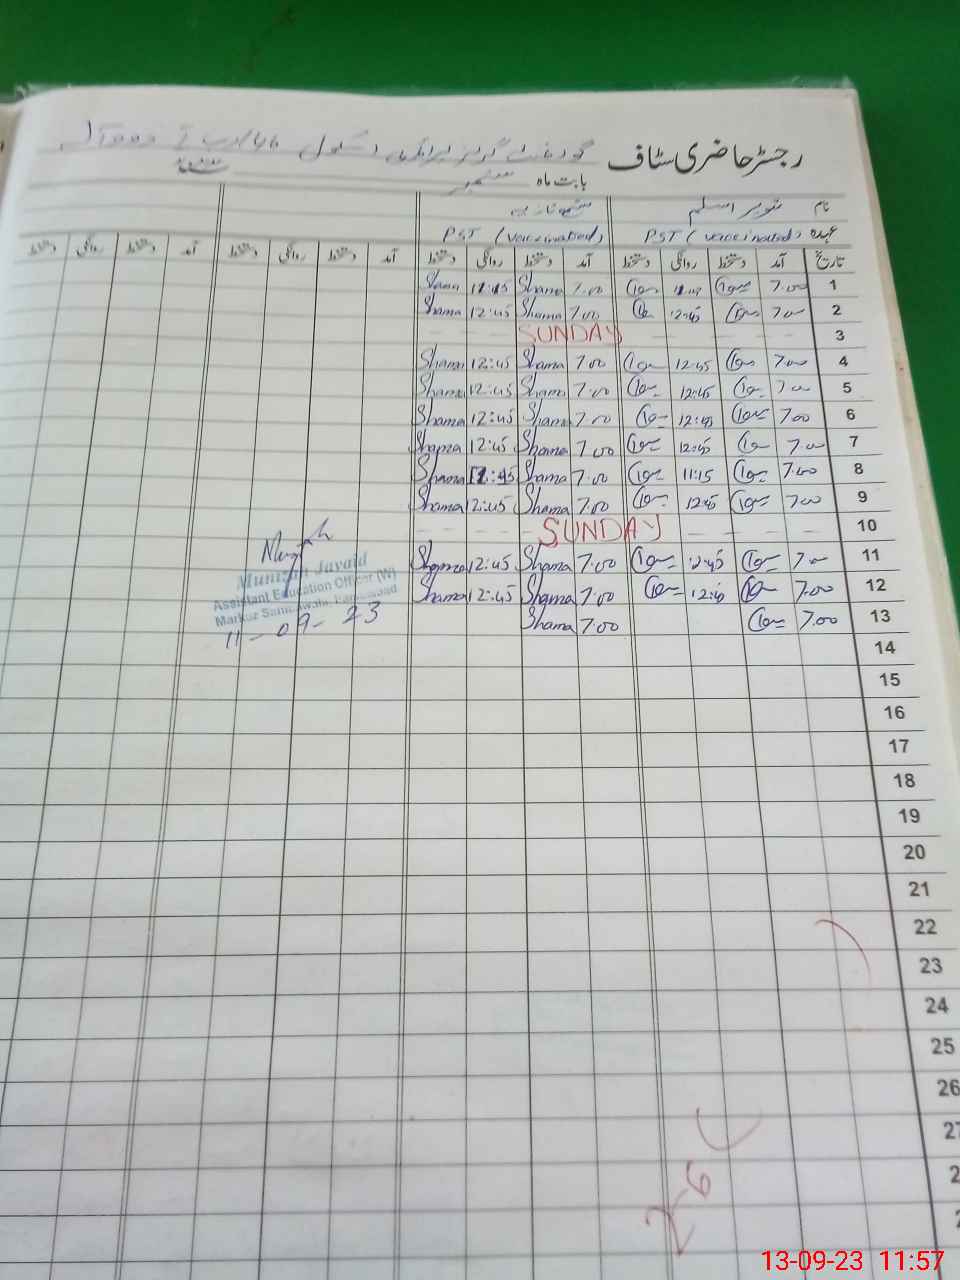 رجسٹر حاضری سٹاف گورنمنٹ گرلز پرائمری سکول
بابت ماہ ستمبر
نام تنویر اسلم
عہدہ PST (vaccinated) PST (vaccinated)
تاریخ آمد دستخط روانگی دستخط آمد دستخط روانگی دستخط آمد دستخط روانگی دستخط آمد دستخط روانگی دستخط
1 7.00 7.00 Shama
2 7.00 12:45 7.00 Shama 12:45 Shama
3 SUNDAY
4 7.00 12:45 7.00 Shama 12:45 Shama
5 7.00 12:45 7.00 Shama 12:45 Shama
6 7.00 12:45 7.00 Shama 12:45 Shama
7 7.00 12:45 7.00 Shama 12:45 Shama
8 7.00 11:15 7.00 Shama Shama
9 7.00 12:45 7.00 Shama 12:45 Shama
10 SUNDAY
11 7.00 12:45 7.00 Shama 12:45 Shama
12 7.00 12:45 7.00 Shama 12:45 Shama
13 7.00 7.00 Shama
Javaid
Assistant Education Officer (W)
Markaz
11-09-23
14
15
16
17
18
19
20
21
22
23
24
25
26
13-09-23 11:57